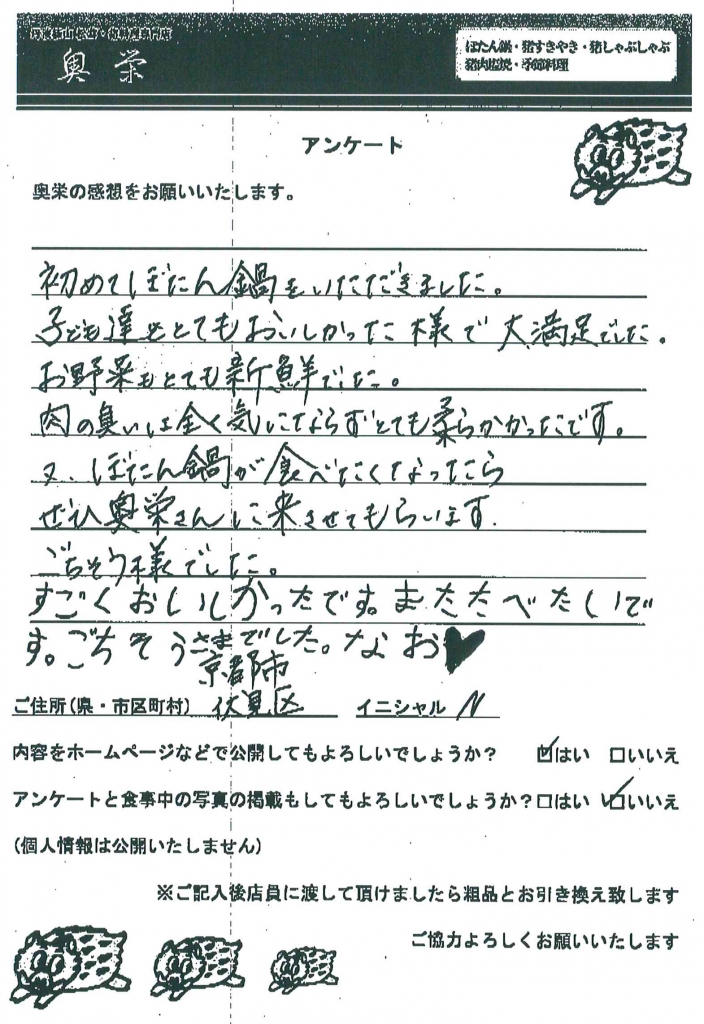 奥栄
ぼたん鍋・猪すきやき・猪しゃぶしゃぶ
猪肉塩焼・季節料理
アンケート
奥栄の感想をお願いいたします。
初めてぼたん鍋をいただきました。
子ども達もとてもおいしかった様で大満足でした。
お野菜もとても新鮮でした。
肉の臭いは全く気にならずとても柔らかかったです。
又、ぼたん鍋が食べたくなったら
ぜひ奥栄さんに来させてもらいます.
ごちそう様でした。
すごくおいしかったです。またたべたいで
す。ごちそうさまでした。なお♥
京都市
ご住所(県・市区町村) 伏見区 イニシャル N
内容をホームページなどで公開してもよろしいでしょうか? ☑はい □いいえ
アンケートと食事中の写真の掲載もしてもよろしいでしょうか?□はい ☑いいえ
(個人情報は公開いたしません)
※ご記入後店員に渡して頂けましたら粗品とお引き換え致します
ご協力よろしくお願いいたします